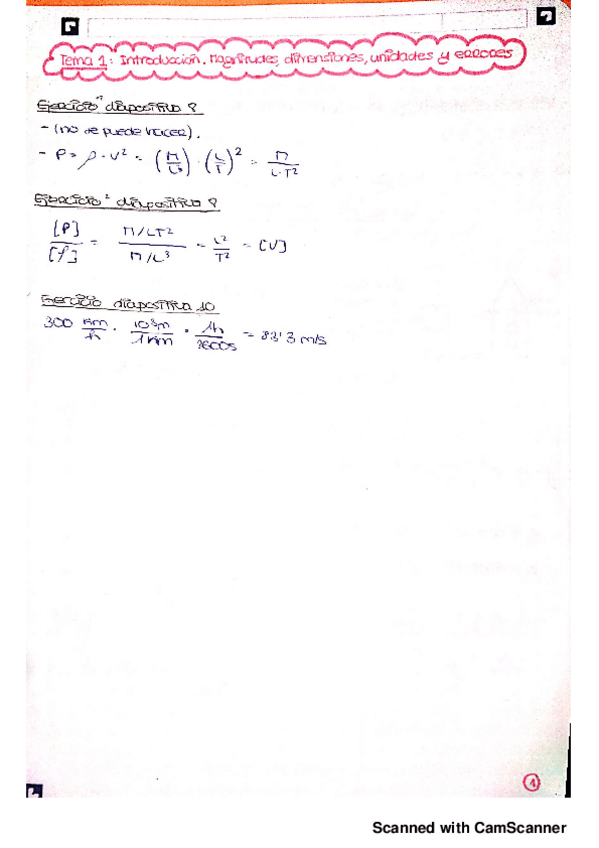 Tema 1: Introducción. Magnitudes, dimensiones, unidades y errores
Ejercicio 1 diapositiva 8
- (no se puede hacer).
- P = ρ · v² = (M/L³) · (L/T)² = M/L·T²
Ejercicio 2 diapositiva 8
[P]/[ρ] = M/LT² / M/L³ = L²/T² = [V]
Ejercicio diapositiva 10
300 km/h · 10³m/1km · 1h/3600s = 83'3 m/s
1
Scanned with CamScanner